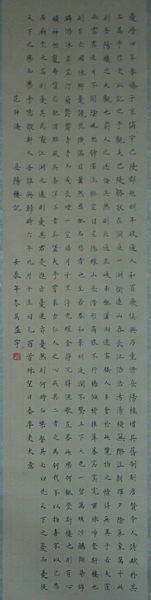 慶曆四年春滕子京謫守巴陵郡越明年政通人和百廢俱興乃重修岳陽樓增其舊制刻唐賢今人詩賦於其
上屬予作文以記之予觀夫巴陵勝狀在洞庭一湖銜遠山吞長江浩浩湯湯橫無際涯朝暉夕陰氣象萬千此
則岳陽樓之大觀也前人之述備矣然則北通巫峽南極瀟湘遷客騷人多會於此覽物之情得無異乎若夫霪
雨霏霏連月不開陰風怒號濁浪排空日星隱曜山岳潛形商旅不行檣傾楫摧薄暮冥冥虎嘯猿啼登斯樓也
則有去國懷鄉憂讒畏譏滿目蕭然感極而悲者矣至若春和景明波瀾不驚上下天光一碧萬頃沙鷗翔集錦
鱗游泳岸芷汀蘭郁郁青青而或長煙一空皓月千里浮光躍金靜影沉璧漁歌互答此樂何極登斯樓也則有心
曠神怡寵辱皆忘把酒臨風其喜洋洋者矣嗟夫予嘗求古仁人之心或異二者之為何哉不以物喜不以己悲居
廟堂之高則憂其民處江湖之遠則憂其君是進亦憂退亦憂然則何時而樂耶其必曰先天下之憂而憂後
天下之樂而樂乎噫微斯人吾誰與歸時六年九月十五日
范仲淹 岳陽樓記 壬辰年冬孟宇